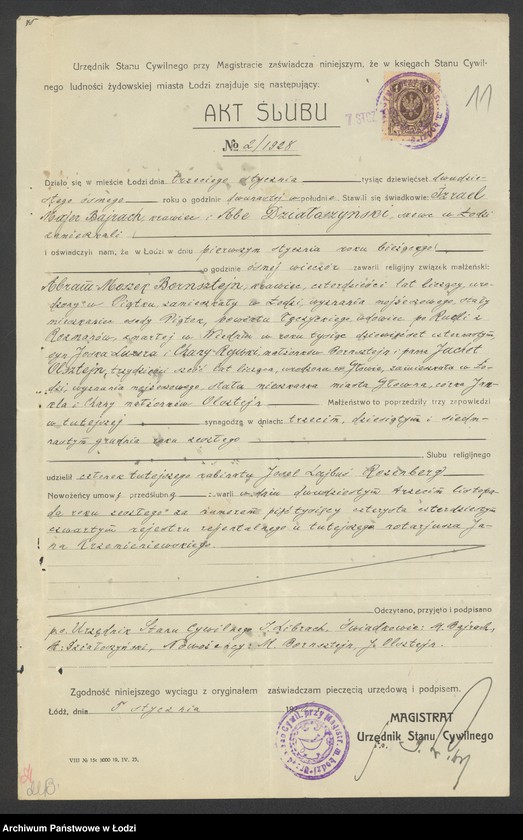 Urzędnik Stanu Cywilnego przy Magistracie zaświadcza niniejszym, że w księgach Stanu Cywil-
nego ludności żydowskiej miasta Łodzi znajduje się następujący:
11
AKT ŚLUBU
№ 2/1928
Działo się w mieście Łodzi dnia trzeciego stycznia tysiąc dziewięćset dwudzie-
stego ósmego roku o godzinie dwunastej w południe Stawili się świadkowie: Izrael
Majer Bajrach, krawiec i Abe Działoszyński, w Łodzi
zamieszkali
i oświadczyli nam, że w Łodzi w dniu pierwszym stycznia roku bieżącego
o godzinie ósmej wieczór zawarli religijny związek małżeński:
Abram Moszek Bernsztejn, krawiec, czterdzieści lat liczący, uro-
dzony w Piątku, zamieszkały w Łodzi, wyznania mojżeszowego, stały
mieszkaniec Piątek, powiatu Łęczyckiego, wdowiec po Rudli z
zmarłej w Wiedniu w roku tysiąc dziewięćset czternastym,
syn i Chany małżonków Bernsztejn i panna
Olsztejn, trzydzieści lat licząca, urodzona w Głownie, zamieszkała w Ło-
dzi, wyznania mojżeszowego stała mieszkanka miasta Głowna, córka
i Chany małżonków Olsztejn Małżeństwo to poprzedziły trzy zapowiedzi
w tutejszej synagodze w dniach: trzecim, dziesiątym i siedm-
nastym grudnia roku zeszłego
Ślubu religijnego
udzielił członek tutejszego rabinatu Josel Lajbuś Rozenberg
Nowożeńcy umowę przedślubną zawarli w dniu dwudziestym trzecim listopa-
da roku zeszłego za numerem pięć tysięcy czterysta czterdziestym
czwartym rejestru rejentalnego u tutejszego notarjusza Ja-
na Krzemieniewskiego.
Odczytano, przyjęto i podpisano
p.o. Urzędnik Stanu Cywilnego Świadkowie: M. Bajrach,
A. Działoszyński, Nowożeńcy: M. Bernsztejn, J. Olsztejn.
Zgodność niniejszego wyciągu z oryginałem zaświadczam pieczęcią urzędową i podpisem.
Łódź, dnia 5 stycznia 192
MAGISTRAT
Urzędnik Stanu Cywilnego
Archiwum Państwowe w Łodzi